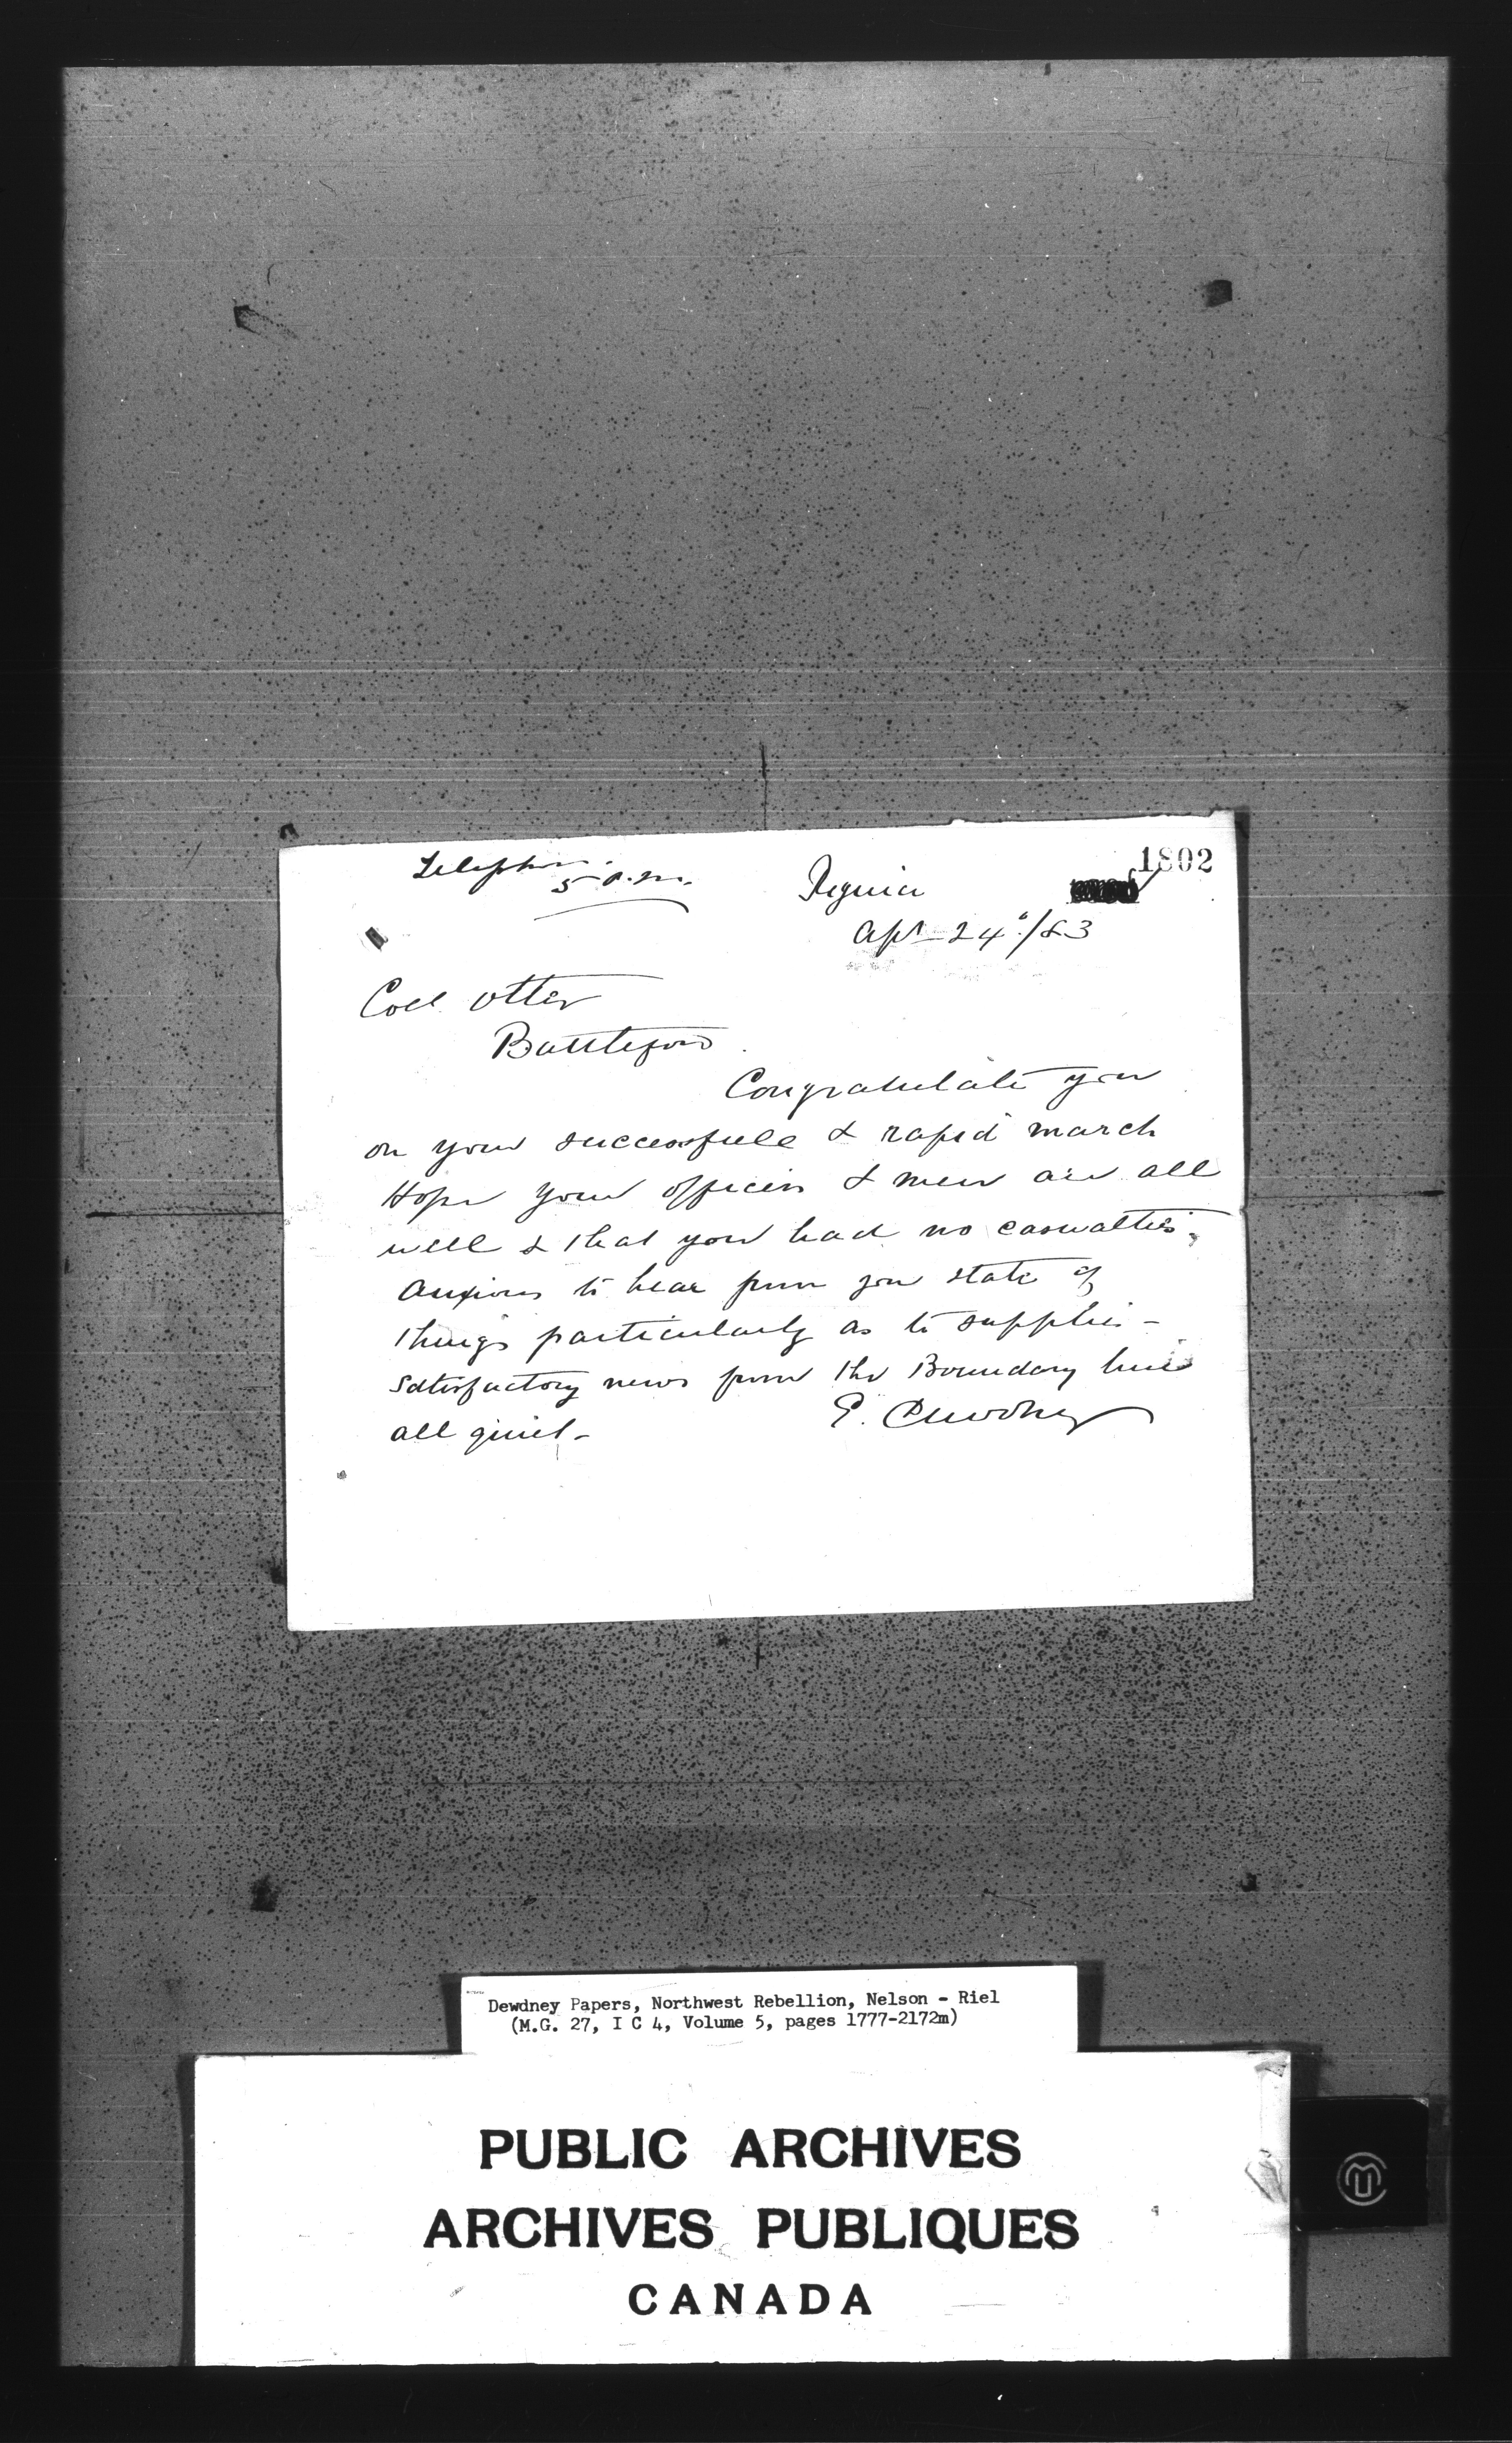 1802
Telephone
5 P.M.
Regina
Apl 24th/83
Coll Otter
Battleford
Congratulate you
on your successfull & rapid march
Hope your officers & men are all
well & that you had no casualties.
Anxious to hear from you state of
things particularly as to supplies -
Satisfactory news from the Boundary line
all quiet -
E. Dewdney
Dewdney Papers, Northwest Rebellion, Nelson - Riel
(M.G. 27, I C 4, Volume 5, pages 1777-2172m)
PUBLIC ARCHIVES
ARCHIVES PUBLIQUES
CANADA